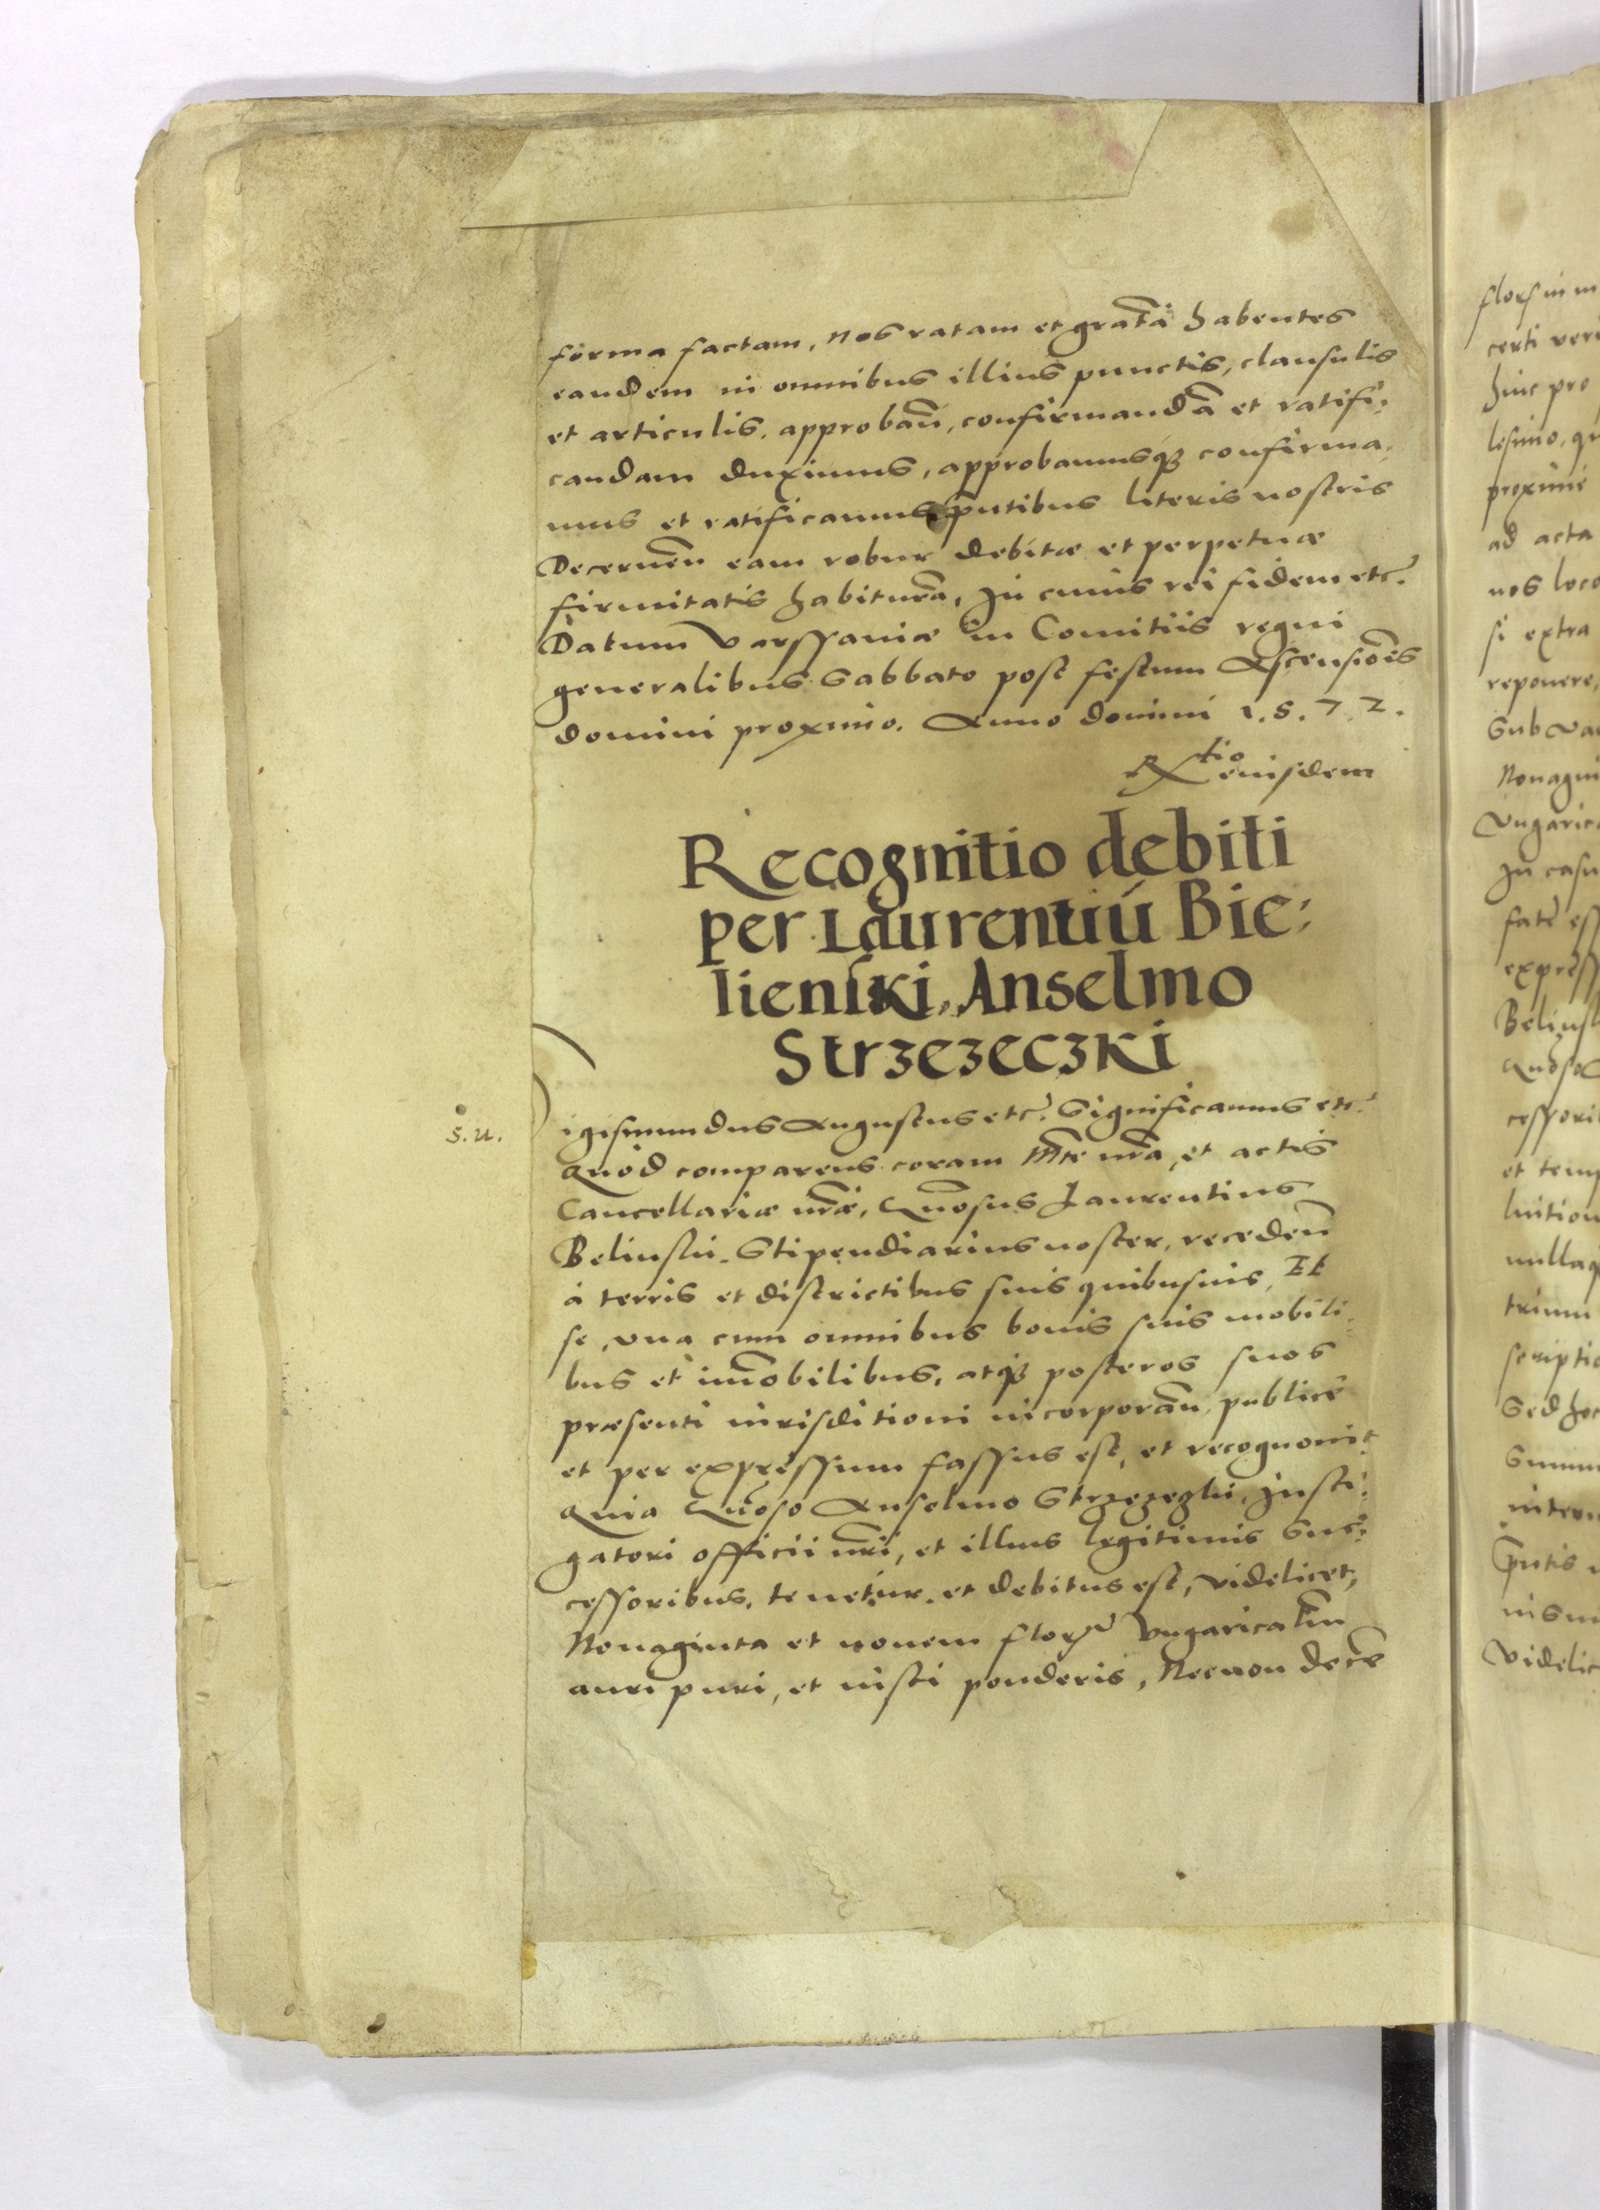 forma factam, nos ratam et gratã habentes
eandem in omnibus illius punctis, clausulis
et articulis, approbañ, confirmandã et ratifi,
candam duximus, approbamusq; confirma,
mus et ratificamus pñtibus literis nostris
Decerneñ eam robur debitæ et perpetuæ
firmitatis habiturã, In cuius rei fidem etc.
Datum Varssaviæ in Comitiis regni
generalibus Sabbato post festum Ascensiõis
domini proximo. Anno domini 1.5.7.2.
Rtio eiusdem
Recognitio debiti
per Laurentiú Bie,
lienski, Anselmo
Strzezeczki
S. u.
igismundus Augustus etc. Significamus etc.
Quod comparens coram Mte nrã, et actis
Cancellariæ nræ, Gñosus Laurentius
Belinski Stipendiarius noster, recedeñ
à terris et districtibus suis quibusuis, Et
se, vna cum omnibus bonis suis mobili,
bus et im̃obilibus, atq; posteros suos
præsenti iurisditioni incorporañ, publicè
et per expressum fassus est, et recognouit
Quia Gñoso Anselmo Strzezeczki, Insti,
gatori officii nri, et illius legitimis Suc,
cessoribus, tenetur et debitus est, videlicet,
Nonaginta et nouem flor. Vngaricaliũ
auri puri, et iusti ponderis, Necnon decẽ
florſ in m
certi ver
huic pro
lesimo, qu
proximè
ad acta
nos loco
si extra
reponere,
Sub va
Nonagin
Vngarica
In casu
expressſ
Belinsk
cessori
et temp
nullaq
trium
scriptio
Sed hoc
Summ
pñtis
videlic